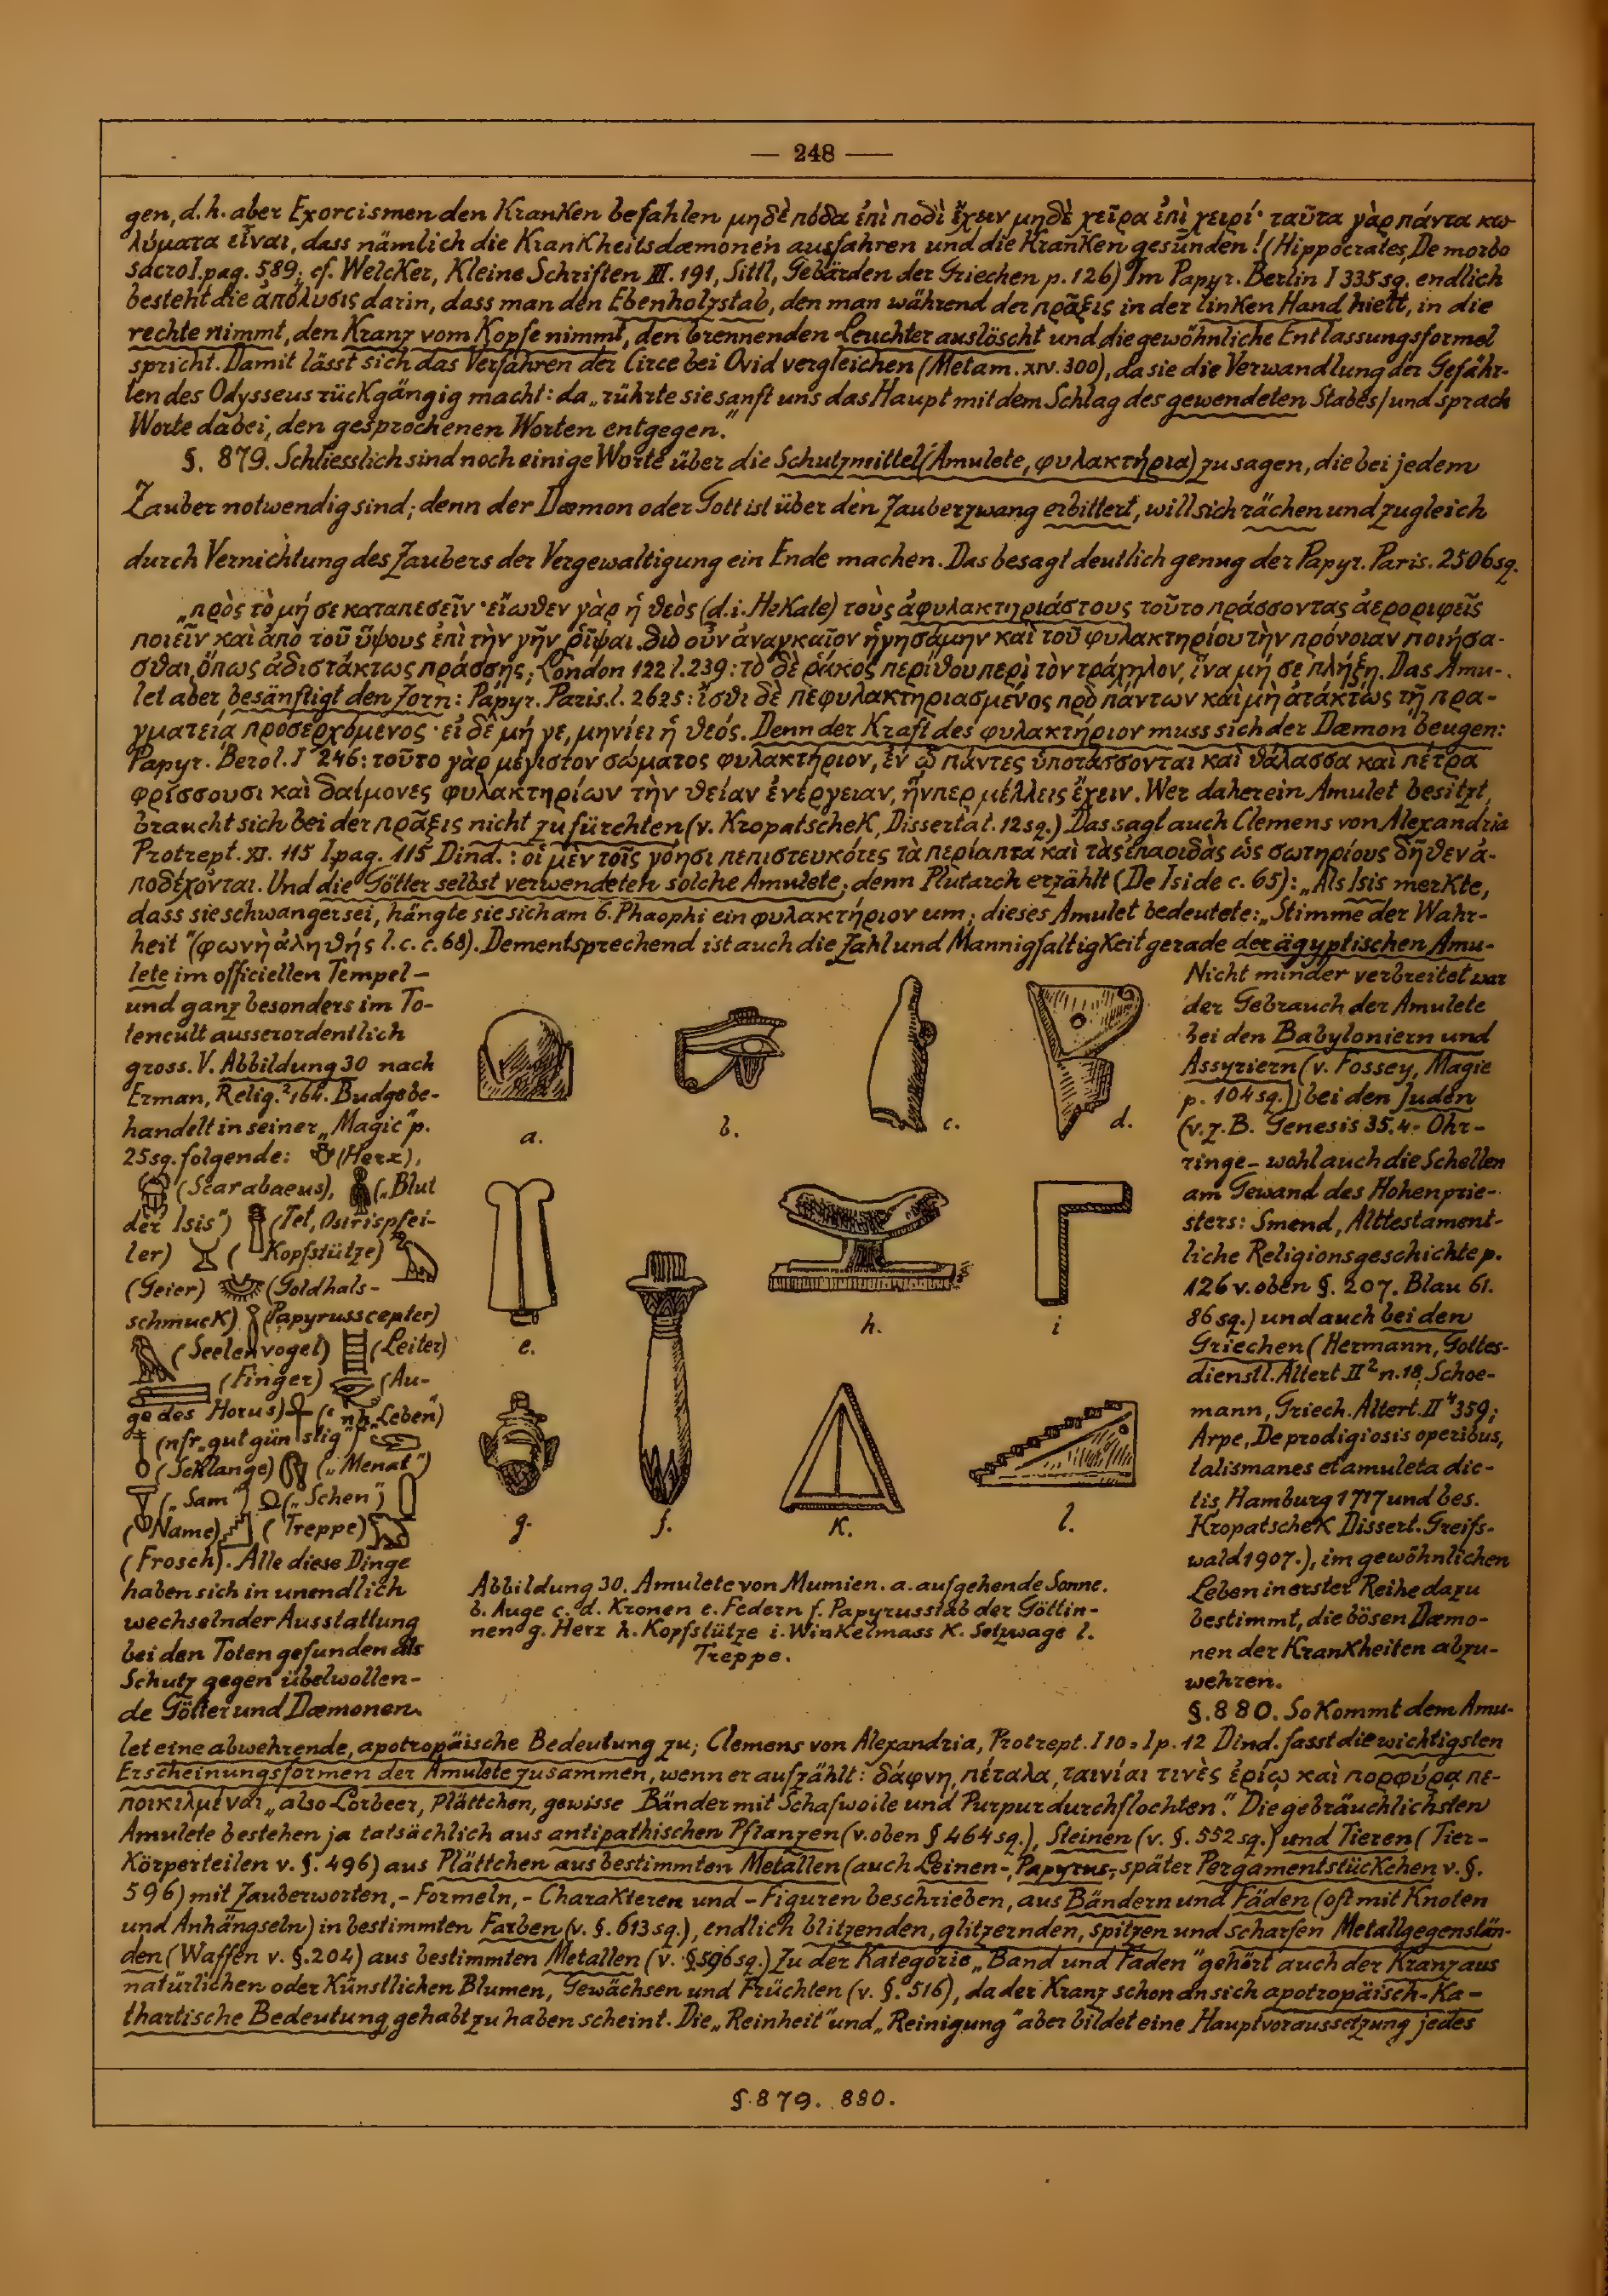 — 248 —
gen, d. h. aber Exorcismen den Kranken befahlen μηδὲ πόδα ἐπὶ ποδὶ ἔχειν μηδὲ χεῖρα ἐπὶ χειρί· ταῦτα γὰρ πάντα κω-
λύματα εἶναι, dass nämlich die Krankheitsdæmonen ausfahren und die Kranken gesunden! (Hippocrates, De morbo
sacro I. pag. 589; cf. Welcker, Kleine Schriften III. 191, Sittl, Gebärden der Griechen p. 126) Im Papyr. Berlin I 335 sq. endlich
besteht die ἀπόλυσις darin, dass man den Ebenholzstab, den man während der πρᾶξις in der linken Hand hielt, in die
rechte nimmt, den Kranz vom Kopfe nimmt, den brennenden Leuchter auslöscht und die gewöhnliche Entlassungsformel
spricht. Damit lässt sich das Verfahren der Circe bei Ovid vergleichen (Metam. XIV. 300), da sie die Verwandlung der Gefähr-
ten des Odysseus rückgängig macht: da „rührte sie sanft uns das Haupt mit dem Schlag des gewendeten Stabes / und sprach
Worte dabei, den gesprochenen Worten entgegen."
§. 879. Schliesslich sind noch einige Worte über die Schutzmittel (Amulete, φυλακτήρια) zu sagen, die bei jedem
Zauber notwendig sind; denn der Dæmon oder Gott ist über den Zauberzwang erbittert, will sich rächen und zugleich
durch Vernichtung des Zaubers der Vergewaltigung ein Ende machen. Das besagt deutlich genug der Papyr. Paris. 2506 sq.
„πρὸς τὸ μή σε καταπεσεῖν· εἴωθεν γὰρ ἡ θεὸς (d. i. Hekate) τοὺς ἀφυλακτηριάστους τοῦτο πράσσοντας ἀεροριφεῖς
ποιεῖν καὶ ἀπὸ τοῦ ὕψους ἐπὶ τὴν γῆν ῥῖψαι. διὸ οὖν ἀναγκαῖον ἡγησάμην καὶ τοῦ φυλακτηρίου τὴν πρόνοιαν ποιήσα-
σθαι, ὅπως ἀδιστάκτως πράσσῃς; London 122 l. 239: τὸ δὲ ῥάκος περίθου περὶ τὸν τράχηλον, ἵνα μή σε πλήξῃ. Das Amu-
let aber besänftigt den Zorn: Papyr. Paris. l. 2625: ἴσθι δὲ πεφυλακτηριασμένος πρὸ πάντων καὶ μὴ ἀτάκτως τῇ πρα-
γματείᾳ προσερχόμενος· εἰ δὲ μή γε, μηνίει ἡ θεός. Denn der Kraft des φυλακτήριον muss sich der Dæmon beugen:
Papyr. Berol. I 246: τοῦτο γὰρ μέγιστον σώματος φυλακτήριον, ἐν ᾧ πάντες ὑποτάσσονται καὶ θάλασσα καὶ πέτρα
φρίσσουσι καὶ δαίμονες φυλακτηρίων τὴν θείαν ἐνέργειαν, ἥνπερ μέλλεις ἔχειν. Wer daher ein Amulet besitzt,
braucht sich bei der πρᾶξις nicht zu fürchten (v. Kropatschek, Dissertat. 12 sq.) Das sagt auch Clemens von Alexandria
Protrept. XI. 115 I. pag. 115 Dind.: οἱ μὲν τοῖς γόησι πεπιστευκότες τὰ περίαπτα καὶ τὰς ἐπαοιδὰς ὡς σωτηρίους δῆθεν ἀ-
ποδέχονται. Und die Götter selbst verwendeten solche Amulete; denn Plutarch erzählt (De Iside c. 65): „Als Isis merkte,
dass sie schwanger sei, hängte sie sich am 6. Phaophi ein φυλακτήριον um; dieses Amulet bedeutete: „Stimme der Wahr-
heit" (φωνὴ ἀληθής l. c. c. 68). Dementsprechend ist auch die Zahl und Mannigfaltigkeit gerade der ägyptischen Amu-
lete im officiellen Tempel-
und ganz besonders im To-
tencult ausserordentlich
gross. V. Abbildung 30 nach
Erman, Relig.² 164. Budge be-
handelt in seiner „Magic" p.
25 sq. folgende: (Herz),
(Scarabaeus), („Blut
der Isis") (Tet, Osirispfei-
ler) (Kopfstütze)
(Geier) (Goldhals-
schmuck) (Papyrusscepter)
(Seelenvogel) (Leiter)
(Finger) (Au-
ge des Horus) (ʿnḫ „Leben")
(nfr „gut günstig")
(Schlange) („Menat")
(„Sam") („Schen")
(Name) (Treppe)
(Frosch). Alle diese Dinge
haben sich in unendlich
wechselnder Ausstattung
bei den Toten gefunden als
Schutz gegen übelwollen-
de Götter und Dæmonen.
a.
b.
c.
d.
e.
f.
g.
h.
i
K.
l.
Abbildung 30. Amulete von Mumien. a. aufgehende Sonne.
b. Auge c. d. Kronen e. Federn f. Papyrusstab der Göttin-
nen g. Herz h. Kopfstütze i. Winkelmass K. Setzwage l.
Treppe.
Nicht minder verbreitet war
der Gebrauch der Amulete
bei den Babyloniern und
Assyriern (v. Fossey, Magie
p. 104 sq.)) bei den Juden
(v. z. B. Genesis 35. 4. Ohr-
ringe - wohl auch die Schellen
am Gewand des Hohenprie-
sters: Smend, Alttestament-
liche Religionsgeschichte p.
126 v. oben §. 207. Blau 61.
86 sq.) und auch bei den
Griechen (Hermann, Gottes-
dienstl. Altert. II² n. 18, Schoe-
mann, Griech. Altert. II⁴ 359;
Arpe, De prodigiosis operibus,
talismanes et amuleta dic-
tis, Hamburg 1717 und bes.
Kropatschek Dissert. Greifs-
wald 1907.), im gewöhnlichen
Leben in erster Reihe dazu
bestimmt, die bösen Dæmo-
nen der Krankheiten abzu-
wehren.
§. 880. So kommt dem Amu-
let eine abwehrende, apotropäische Bedeutung zu; Clemens von Alexandria, Protrept. I 10 = I p. 12 Dind. fasst die wichtigsten
Erscheinungsformen der Amulete zusammen, wenn er aufzählt: δάφνη, πέταλα, ταινίαι τινὲς ἐρίῳ καὶ πορφύρᾳ πε-
ποικιλμέναι „also Lorbeer, Plättchen, gewisse Bänder mit Schafwolle und Purpur durchflochten". Die gebräuchlichsten
Amulete bestehen ja tatsächlich aus antipathischen Pflanzen (v. oben § 464 sq.), Steinen (v. §. 552 sq.) und Tieren (Tier-
Körperteilen v. §. 496) aus Plättchen aus bestimmten Metallen (auch Leinen-, Papyrus-, später Pergamentstückchen v. §.
596) mit Zauberworten, - Formeln, - Charakteren und - Figuren beschrieben, aus Bändern und Fäden (oft mit Knoten
und Anhängseln) in bestimmten Farben (v. §. 613 sq.), endlich blitzenden, glitzernden, spitzen und scharfen Metallgegenstän-
den (Waffen v. §. 204) aus bestimmten Metallen (v. §596 sq.) Zu der Kategorie „Band und Faden" gehört auch der Kranz aus
natürlichen oder künstlichen Blumen, Gewächsen und Früchten (v. §. 516), da der Kranz schon an sich apotropäisch-ka-
thartische Bedeutung gehabt zu haben scheint. Die „Reinheit" und „Reinigung" aber bildet eine Hauptvoraussetzung jedes
§. 879. 880.